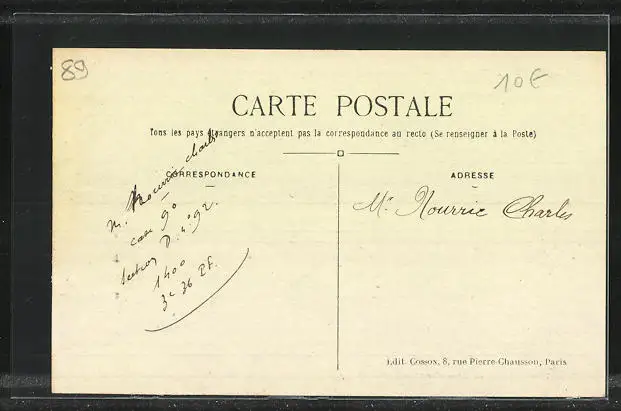 89
10€
CARTE POSTALE
Tous les pays étrangers n'acceptent pas la correspondance au recto (Se renseigner à la Poste)
CORRESPONDANCE
M. Nourric Charles
case 90
Section D. n° 92.
1400
36
ADRESSE
Mr Nourric Charles
Édit. Cossox, 8, rue Pierre-Chausson, Paris